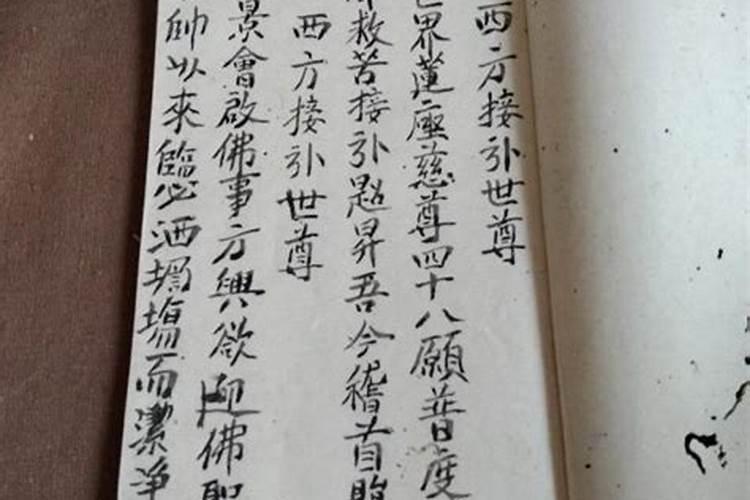 西方接引世尊
世界蓮座慈尊四十八願普度
救苦接引超昇吾今稽首
西方接引世尊
景會啟佛事方興欲迎佛聖
帥以來臨必洒塲而潔淨